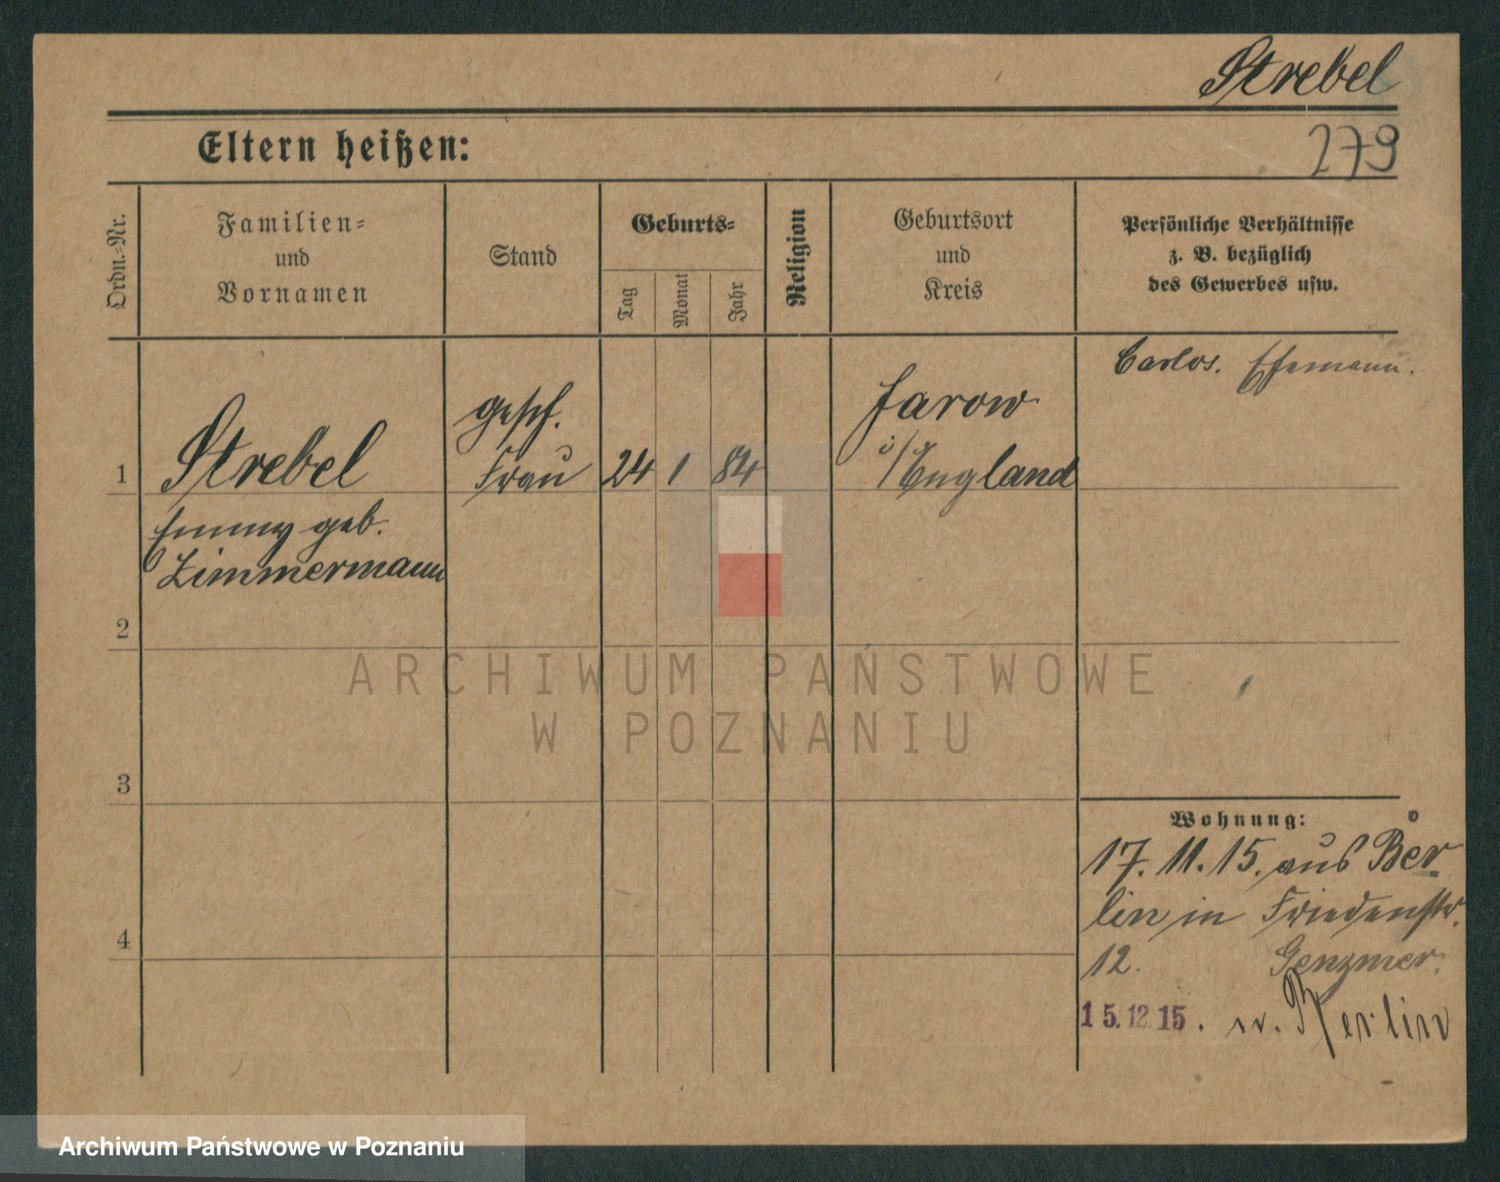 Strebel
279
Eltern heißen:
Ordn.-Nr.
Familien-
und
Vornamen
Stand
Geburts-
Tag
Monat
Jahr
Religion
Geburtsort
und
Kreis
Persönliche Verhältnisse
z. B. bezüglich
des Gewerbes usw.
Carlos. Ehemann.
gesch.
Jarow
1 Strebel Frau 24 1 84 i/England
Emmy geb.
Zimmermann
2
ARCHIWUM PAŃSTWOWE
W POZNANIU
3
Wohnung:
17.11.15. aus Ber-
lin in Friedenstr.
4
12. Genzmer.
15.12.15. n. Berlin
Archiwum Państwowe w Poznaniu